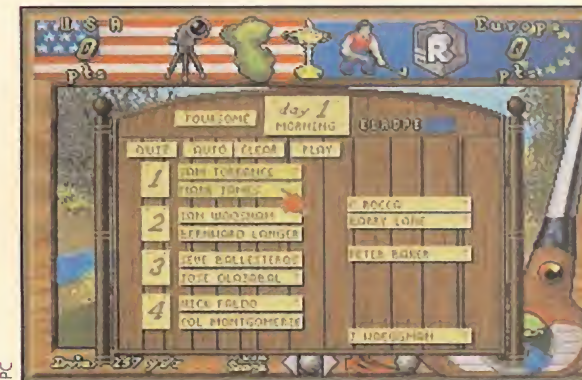 U S A
0
pts
R
Europe
0
pts
FOURSOME
day 1
MORNING
EUROPE
QUIT AUTO CLEAR PLAY
1
SAM TORRANCE
MARK JAMES
2
IAN WOOSNAM
BERNHARD LANGER
3
SEVE BALLESTEROS
JOSE OLAZABAL
4
NICK FALDO
COL MONTGOMERIE
C ROCCA
BARRY LANE
PETER BAKER
J HAEGGMAN
237 yds
PC